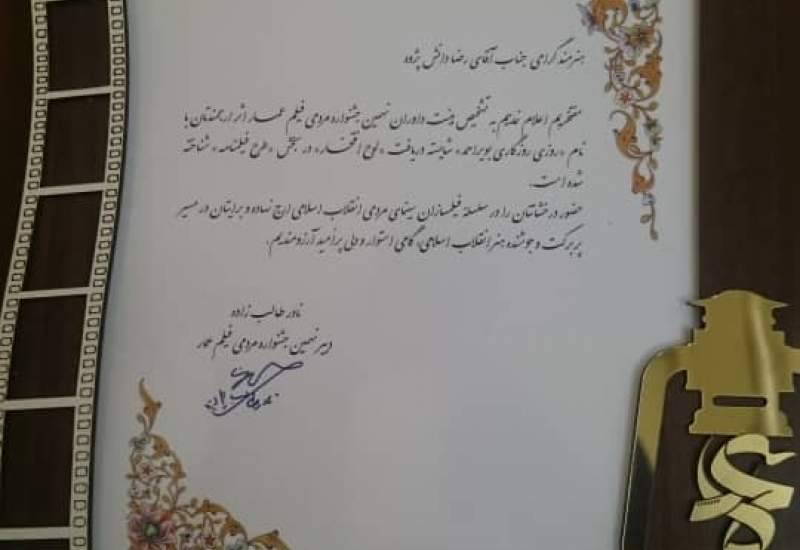 هنرمند گرامی جناب آقای رضا دانش پژوه
مفتخریم اعلام نماییم به تشخیص هیئت داوران نهمین جشنواره مردمی فیلم عمار اثر ارجمندتان با
نام «روزی روزگاری بویراحمد» شایسته دریافت «لوح افتخار» در بخش «طرح فیلمنامه» شناخته
شده است.
حضور درخشانتان را در سلسله فیلمسازان سینمای مردمی انقلاب اسلامی ارج نهاده و برایتان در مسیر
پر برکت و جوشنده هنر انقلاب اسلامی، گامی استوار و دلی پر امید آرزومندیم.
نادر طالب زاده
دبیر نهمین جشنواره مردمی فیلم عمار